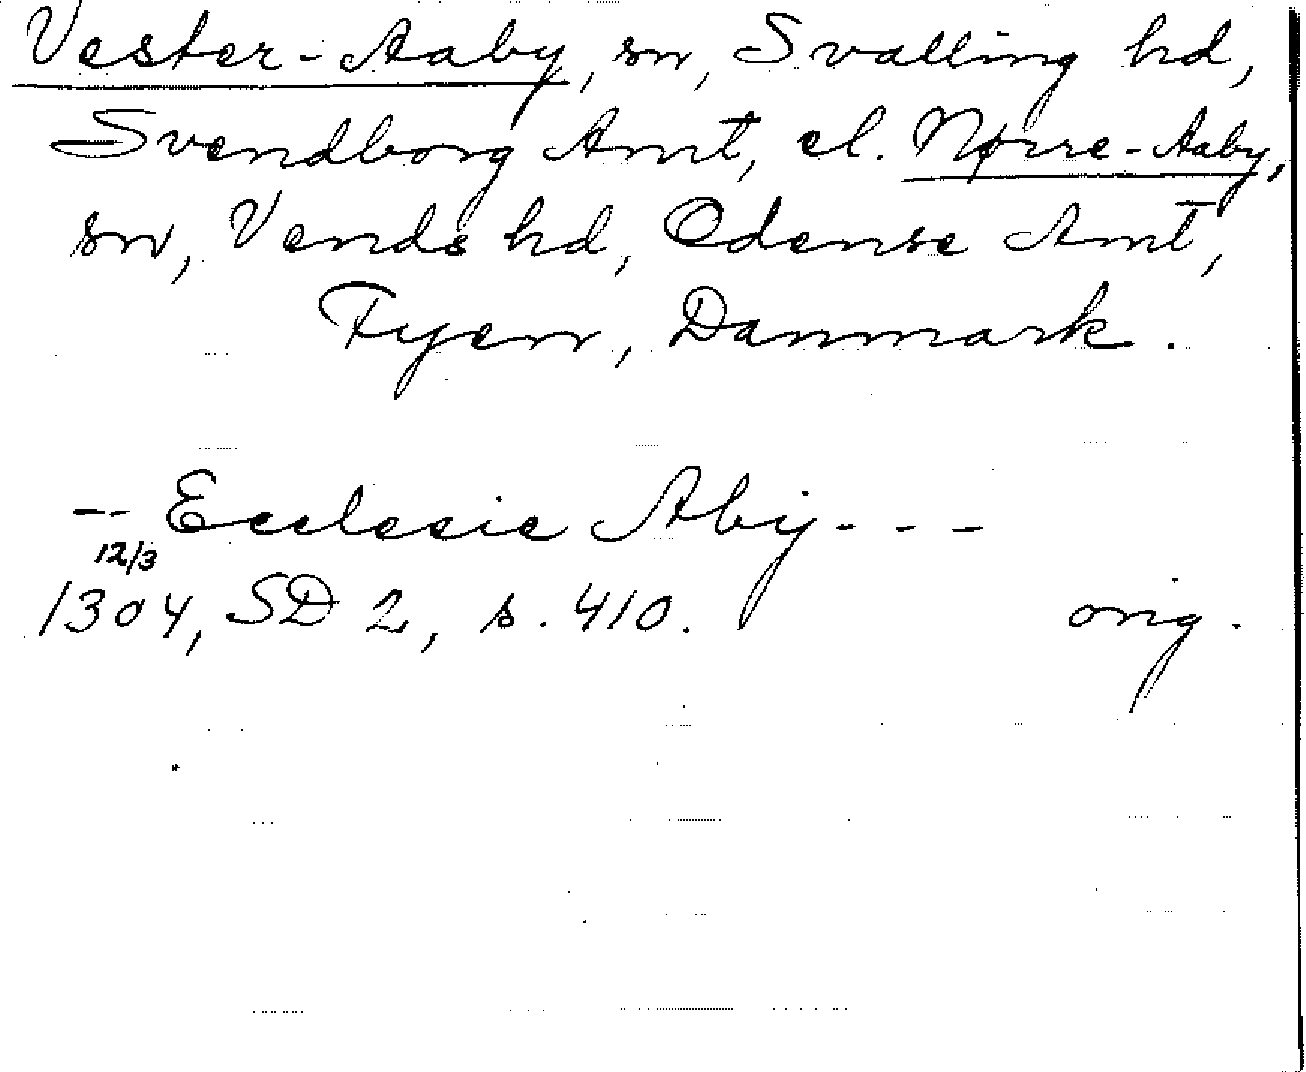 Vester-Aaby, sn, Svalling hd,
Svendborg Amt, el. Nørre-Aaby,
sn, Vends hd, Odense Amt,
Fyen, Danmark.
-- Ecclesie Aby - - -
12/3
1304, SD 2, s. 410. orig.